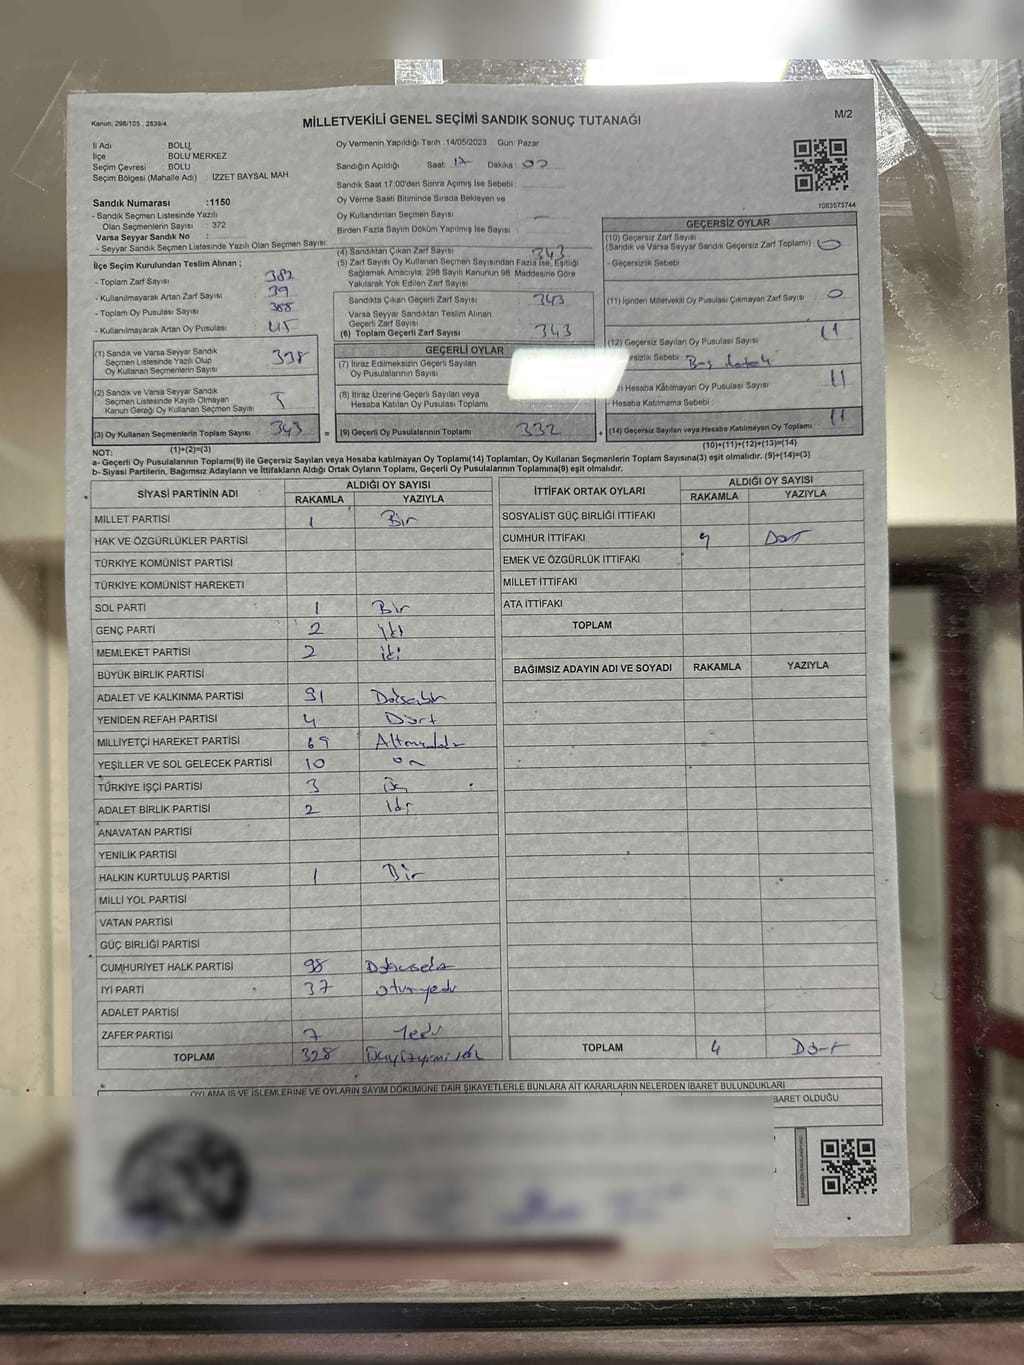 Kanun: 298/105 , 2839/4
MİLLETVEKİLİ GENEL SEÇİMİ SANDIK SONUÇ TUTANAĞI
M/2
İl Adı BOLU
İlçe BOLU MERKEZ
Seçim Çevresi BOLU
Seçim Bölgesi (Mahalle Adı) : İZZET BAYSAL MAH.
Sandık Numarası :1150
- Sandık Seçmen Listesinde Yazılı
Olan Seçmenlerin Sayısı : 372
Varsa Seyyar Sandık No :
- Seyyar Sandık Seçmen Listesinde Yazılı Olan Seçmen Sayısı:
Oy Vermenin Yapıldığı Tarih :14/05/2023 Gün: Pazar
Sandığın Açıldığı Saat: 17 Dakika : 00
Sandık Saat 17:00'den Sonra Açılmış İse Sebebi :
Oy Verme Saati Bitiminde Sırada Bekleyen ve
Oy Kullandırılan Seçmen Sayısı
Birden Fazla Sayım Döküm Yapılmış İse Sayısı :
1083573744
İlçe Seçim Kurulundan Teslim Alınan ;
- Toplam Zarf Sayısı 382
- Kullanılmayarak Artan Zarf Sayısı 39
- Toplam Oy Pusulası Sayısı 388
- Kullanılmayarak Artan Oy Pusulası 45
(1) Sandık ve Varsa Seyyar Sandık
Seçmen Listesinde Yazılı Olup
Oy Kullanan Seçmenlerin Sayısı 338
(2) Sandık ve Varsa Seyyar Sandık
Seçmen Listesinde Kayıtlı Olmayan
Kanun Gereği Oy Kullanan Seçmen Sayısı 5
(3) Oy Kullanan Seçmenlerin Toplam Sayısı 343
(1)+(2)=(3)
(4) Sandıktan Çıkan Zarf Sayısı 343
(5) Zarf Sayısı Oy Kullanan Seçmen Sayısından Fazla İse, Eşitliği
Sağlamak Amacıyla; 298 Sayılı Kanunun 98. Maddesine Göre
Yakılarak Yok Edilen Zarf Sayısı
Sandıkta Çıkan Geçerli Zarf Sayısı 343
Varsa Seyyar Sandıktan Teslim Alınan
Geçerli Zarf Sayısı
(6) Toplam Geçerli Zarf Sayısı 343
GEÇERLİ OYLAR
(7) İtiraz Edilmeksizin Geçerli Sayılan
Oy Pusulalarının Sayısı
(8) İtiraz Üzerine Geçerli Sayılan veya
Hesaba Katılan Oy Pusulası Toplamı
= (9) Geçerli Oy Pusulalarının Toplamı 332 +
GEÇERSİZ OYLAR
(10) Geçersiz Zarf Sayısı
(Sandık ve Varsa Seyyar Sandık Geçersiz Zarf Toplamı) 0
- Geçersizlik Sebebi
(11) İçinden Milletvekili Oy Pusulası Çıkmayan Zarf Sayısı 0
(12) Geçersiz Sayılan Oy Pusulası Sayısı 11
rsizlik Sebebi
) Hesaba Katılmayan Oy Pusulası Sayısı 11
- Hesaba Katılmama Sebebi :
(14) Geçersiz Sayılan veya Hesaba Katılmayan Oy Toplamı 11
(10)+(11)+(12)+(13)=(14)
NOT:
a- Geçerli Oy Pusulalarının Toplamı(9) ile Geçersiz Sayılan veya Hesaba katılmayan Oy Toplamı(14) Toplamları, Oy Kullanan Seçmenlerin Toplam Sayısına(3) eşit olmalıdır. (9)+(14)=(3)
b- Siyasi Partilerin, Bağımsız Adayların ve İttifakların Aldığı Ortak Oyların Toplamı, Geçerli Oy Pusulalarının Toplamına(9) eşit olmalıdır.
SİYASİ PARTİNİN ADI ALDIĞI OY SAYISI
RAKAMLA YAZIYLA
MİLLET PARTİSİ 1 Bir
HAK VE ÖZGÜRLÜKLER PARTİSİ
TÜRKİYE KOMÜNİST PARTİSİ
TÜRKİYE KOMÜNİST HAREKETİ
SOL PARTİ 1 Bir
GENÇ PARTİ 2 iki
MEMLEKET PARTİSİ 2 iki
BÜYÜK BİRLİK PARTİSİ
ADALET VE KALKINMA PARTİSİ 91
YENİDEN REFAH PARTİSİ 4 Dört
MİLLİYETÇİ HAREKET PARTİSİ 69
YEŞİLLER VE SOL GELECEK PARTİSİ 10 on
TÜRKİYE İŞÇİ PARTİSİ 3 üç
ADALET BİRLİK PARTİSİ 2 iki
ANAVATAN PARTİSİ
YENİLİK PARTİSİ
HALKIN KURTULUŞ PARTİSİ 1 Bir
MİLLİ YOL PARTİSİ
VATAN PARTİSİ
GÜÇ BİRLİĞİ PARTİSİ
CUMHURİYET HALK PARTİSİ 98
İYİ PARTİ 37 otuzyedi
ADALET PARTİSİ
ZAFER PARTİSİ 7 Yedi
TOPLAM 328
İTTİFAK ORTAK OYLARI ALDIĞI OY SAYISI
RAKAMLA YAZIYLA
SOSYALİST GÜÇ BİRLİĞİ İTTİFAKI
CUMHUR İTTİFAKI 4 Dört
EMEK VE ÖZGÜRLÜK İTTİFAKI
MİLLET İTTİFAKI
ATA İTTİFAKI
TOPLAM
BAĞIMSIZ ADAYIN ADI VE SOYADI RAKAMLA YAZIYLA
TOPLAM 4 Dört
OYLAMA İŞ VE İŞLEMLERİNE VE OYLARIN SAYIM DÖKÜMÜNE DAİR ŞİKAYETLERLE BUNLARA AİT KARARLARIN NELERDEN İBARET BULUNDUKLARI
BARET OLDUĞU